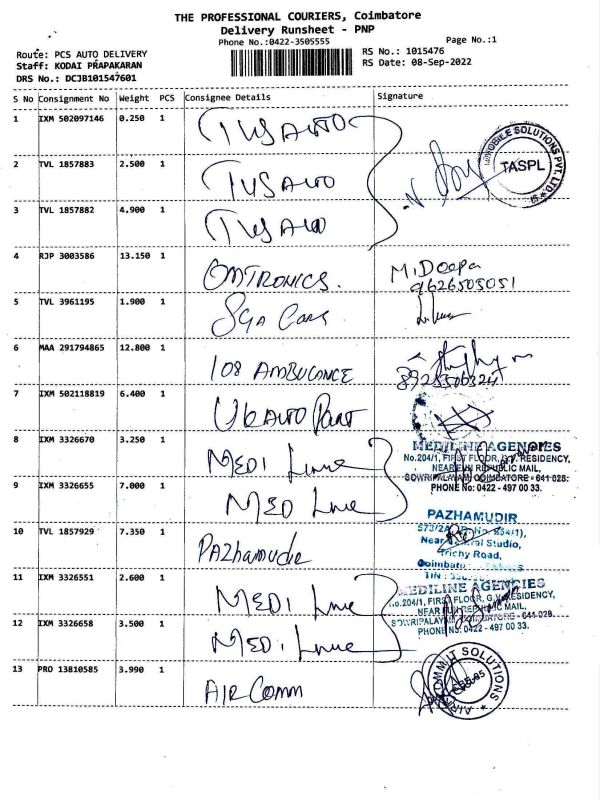 THE PROFESSIONAL COURIERS, Coimbatore
Delivery Runsheet - PNP
Phone No.:0422-3505555
Page No.:1
Route: PCS AUTO DELIVERY
RS No.: 1015476
Staff: KODAI PRAPAKARAN
RS Date: 08-Sep-2022
DRS No.: DCJB101547601
S No Consignment No Weight PCS Consignee Details Signature
1 IXM 502097146 0.250 1 TVS AUTO
2 TVL 1857883 2.500 1 TVS AUTO
3 TVL 1857882 4.900 1 TVS AUTO
MOBILE SOLUTIONS PVT. LTD
TASPL
4 RJP 3003586 13.150 1 OMTRONICS. M. Deepa
9626505051
5 TVL 3961195 1.900 1 SGA Cars
6 MAA 291794865 12.800 1 108 AMBULANCE
7 IXM 502118819 6.400 1 UK AUTO Part
8 IXM 3326670 3.250 1 MEDI Line
MEDILINE AGENCIES
No.204/1, FIRST FLOOR, G.V. RESIDENCY,
NEAR FUN REPUBLIC MAIL,
SOWRIPALAYAM COIMBATORE - 641 028.
PHONE No: 0422 - 497 00 33.
9 IXM 3326655 7.000 1 MED Line
10 TVL 1857929 7.350 1 Pazhamudir
PAZHAMUDIR
573/2A
Near Central Studio,
Trichy Road,
Coimbatore
TIN :
11 IXM 3326551 2.600 1 MEDI Line
MEDILINE AGENCIES
No.204/1, FIRST FLOOR, G.V. RESIDENCY,
NEAR FUN REPUBLIC MAIL,
SOWRIPALAYAM COIMBATORE - 641 028.
PHONE No: 0422 - 497 00 33.
12 IXM 3326658 3.500 1 MEDI Line
13 PRO 13810585 3.990 1 AIR COMM
AIRCOMMIT SOLUTIONS